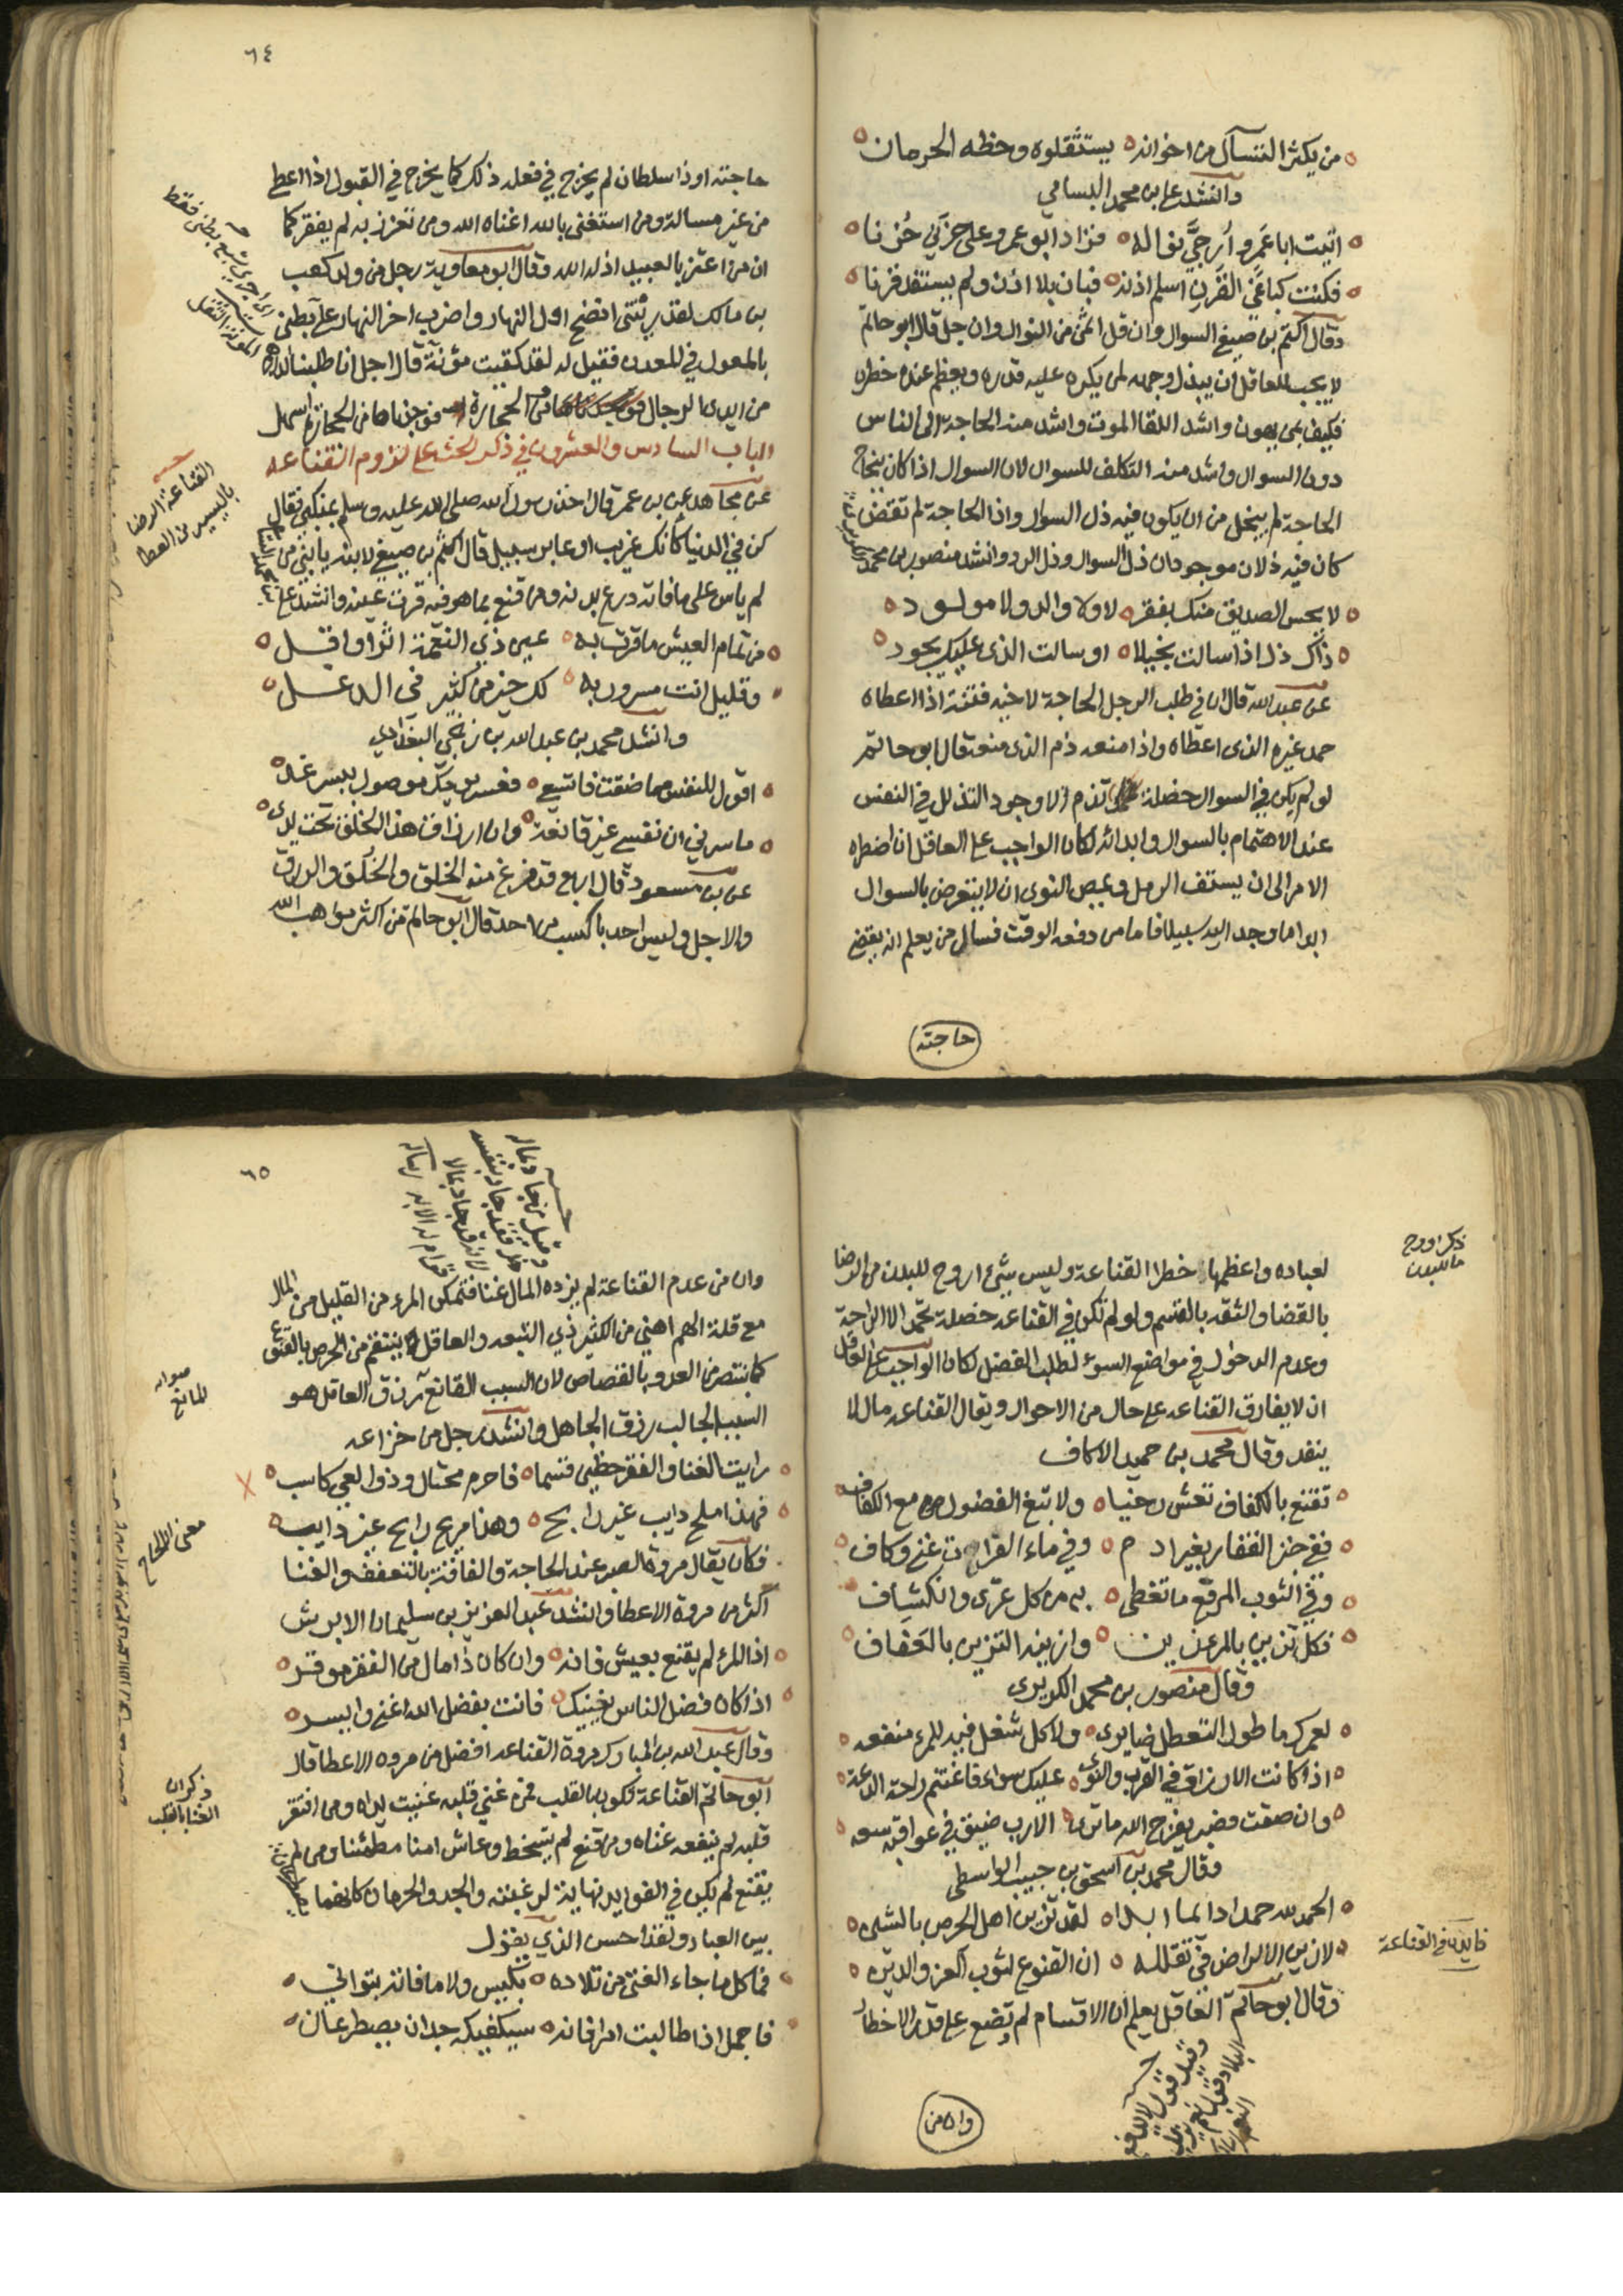 من يكثر التسآل من اخوانه يستثقلوه وحظه الحرمان
وانشد علي بن محمد البسامي
اتيت ابا عمرو أرجي نواله فزاد ابو عمرو على حزني حزنا
فكنت كباغي القرن اسلم اذنه فبان بلا اذن ولم يستفد قرنا
وقال اكثم بن صيفي السوال وان قل اثمن من النوال وان جل قال ابو حاتم
لا يجب للعاقل ان يبذل وجهه لمن يكره عليه قدره ويعظم عنده خطره
فكيف بمن يهون واشد اللقا الموت واشد منه الحاجة الى الناس
دون السوال واشد منه التكلف للسوال لان السوال اذا كان بنجاح
الحاجة لم يخل من ان يكون فيه ذل السوال واذا الحاجة لم تقض
كان فيه ذلان موجودان ذل السوال وذل الرد وانشد منصور بن محمد
لا يحس الصديق منك بفقر لا ولا والد ولا مولود
ذاك ذل اذا سالت بخيلا او سالت الذي عليك يجود
عن عبد الله قال ان في طلب الرجل الحاجة لاخيه فتنة اذا اعطاه
حمد غيره الذي اعطاه واذا منعه ذم الذي منعه قال ابو حاتم
لو لم يكن في السوال خصلة تذم الا وجود التذلل في النفس
عند الاهتمام بالسوال وابدائه لكان الواجب على العاقل ان اضطره
الامر الى ان يستف الرمل ويمص النوى ان لا يتعرض بالسوال
ابدا ما وجد اليه سبيلا فاما من دفعه الوقت فسال من يعلم انه يقضي
حاجته
٦٤
حاجته او ذا سلطان لم يحرج في فعله ذلك كما يحرج في القبول اذا اعطي
من غير مسالة ومن استغنى بالله اغناه الله ومن تعزز به لم يفقر كما
ان من اعتز بالعبيد اذله الله وقال ابو معاوية رجل من ولد كعب
بن مالك لقد ريتني انضح اول النهار واضرب اخر النهار على بطني
بالمعول في المعدن فقيل له لقد لقيت مؤنة قال اجل انا طلبنا الدراهم
من ايدي الرجال ومن الحجارة فوجدناها من الحجارة اسهل
الباب السادس والعشرون في ذكر الحث على لزوم القناعه
عن مجاهد عن بن عمر قال اخذ رسول الله صلى الله عليه وسلم بمنكبي فقال
كن في الدنيا كأنك غريب او عابر سبيل قال اكثم بن صيفي لابنه يا بني من
لم ياس على ما فاته ودع بدنه ومن قنع بما هو فيه قرت عينه وانشد علي
من تمام العيش ما قرت به عين ذي النعمة اثرا واقل
وقليل انت مسرور به لك خير من كثير في الدغل
وانشد محمد بن عبد الله بن زنجي البغدادي
اقول للنفس مهما ضقت فاتسعي فعسر يومك موصول بيسر غد
ما سرني ان نفسي غير قانعة وان ارزاق هذا الخلق تحت يدي
عن بن مسعود قال اربع قد فرغ منه الخلق والخلق والرزق
والاجل وليس احد باكسب من احد قال ابو حاتم من اكثر مواهب الله
القناعة الرضا
باليسير من العطا
ذكر اروح
ما للبدن
لعباده واعظمها خطرا القناعة وليس شيء اروح للبدن من الرضا
بالقضا والثقه بالقسم ولو لم تكن في القناعه خصلة تحمد الا الراحة
وعدم الدخول في مواضع السوء لطلب الفضل لكان الواجب على العاقل
ان لا يفارق القناعه على حال من الاحوال ويقال القناعه مال لا
ينفد وقال محمد بن حميد الاكاف
تقنع بالكفاف تعش رخيا ولا تبغ الفضول مع الكفاف
ففي خبز القفار بغير ادم وفي ماء الفرات غنى وكاف
وفي الثوب المرقع ما تغطى به من كل عري وانكشاف
فكل تزين بالمرء زين وازينه التزين بالعفاف
وقال منصور بن محمد الكريزي
لعمرك ما طول التعطل ضايري ولا كل شغل فيه للمرء منفعه
اذا كانت الارزاق في القرب والنوى عليك سواء فاغتنم راحة الدعة
وان ضقت فصبر يفرج الله ما ترى الا رب ضيق في عواقبه سعه
وقال محمد بن اسحق بن حبيب الواسطي
الحمد لله حمدا دايما ابدا لقد تزين اهل الحرص بالشين
لا زين الا لراض في تقلله ان القنوع لثوب العز والدين
وقال ابو حاتم العاقل يعلم ان الاقسام لم توضع على قدر الاخطار
فايدة في القناعة
وان من
٦٥
وان من عدم القناعة لم يزده المال غنا فتمكن المرء من القليل من المال
مع قلة الهم اهنى من الكثير ذي التبعه والعاقل ينتقم من الحرص بالقنوع
كما ينتصر من العدو بالقصاص لان السبب القانع رزق العاقل هو
السبب الجالب رزق الجاهل وانشد رجل من خزاعه
رايت الغنا والفقر حظين قسما فاحرم محتال وذو العي كاسب
فهذا ملح دايب غير رابح وهذا مريح رابح غير دايب
فكان يقال مروة الصبر عند الحاجة والفاقة بالتعفف والغنا
اكثر من مروة الاعطا وانشد عبد العزيز بن سليمان الابرش
اذا المرء لم يقنع بعيش فانه وان كان ذا مال من الفقر موقر
اذا كان فضل الناس يغنيك فانت بفضل الله اغنى وايسر
وقال عبد الله بن المبارك مروة القناعه افضل من مروه الاعطا قال
ابو حاتم القناعة تكون بالقلب فمن غني قلبه غنيت يداه ومن افتقر
قلبه لم ينفعه غناه ومن قنع لم يتسخط وعاش امنا مطمئنا ومن لم
يقنع لم يكن في الفوايد نهاية لرغبته والجد والحرمان كانهما
بين العباد ولقد احسن الذي يقول
فما كل ما حاز الفتى من تلاده بكيس ولا ما فاته بتواني
فاجمل اذا طالبت امرا فانه سيكفيكه جدان يصطرعان
صوابه
المانع
معنى الالحاح
ذكر ان
الغنا بالقلب